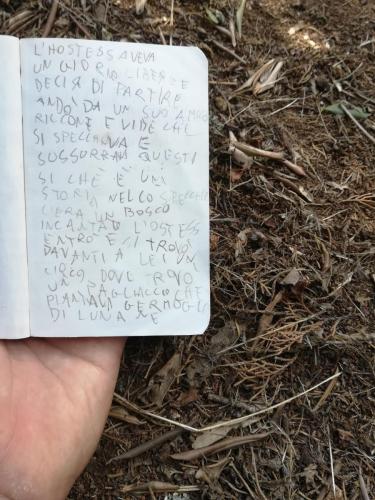 L'HOSTESS AVEVA
UN GIORNO LIBERO E
DECISE DI PARTIRE
ANDÒ DA UN SUO AMICO
RICCONE E VIDE CHE
SI SPECCHIAVA E
SUSSURRAVA QUESTI
SI CHE È UN
STORIA NELLO SPECCHIO
C'ERA UN BOSCO
INCANTATO L'HOSTESS
ENTRÒ E SI TROVÒ
DAVANTI A LEI UN
CIRCO, DOVE TROVÒ
UN PAGLIACCIO CHE
PIANTAVA GERMOGLI
DI LUNA NE